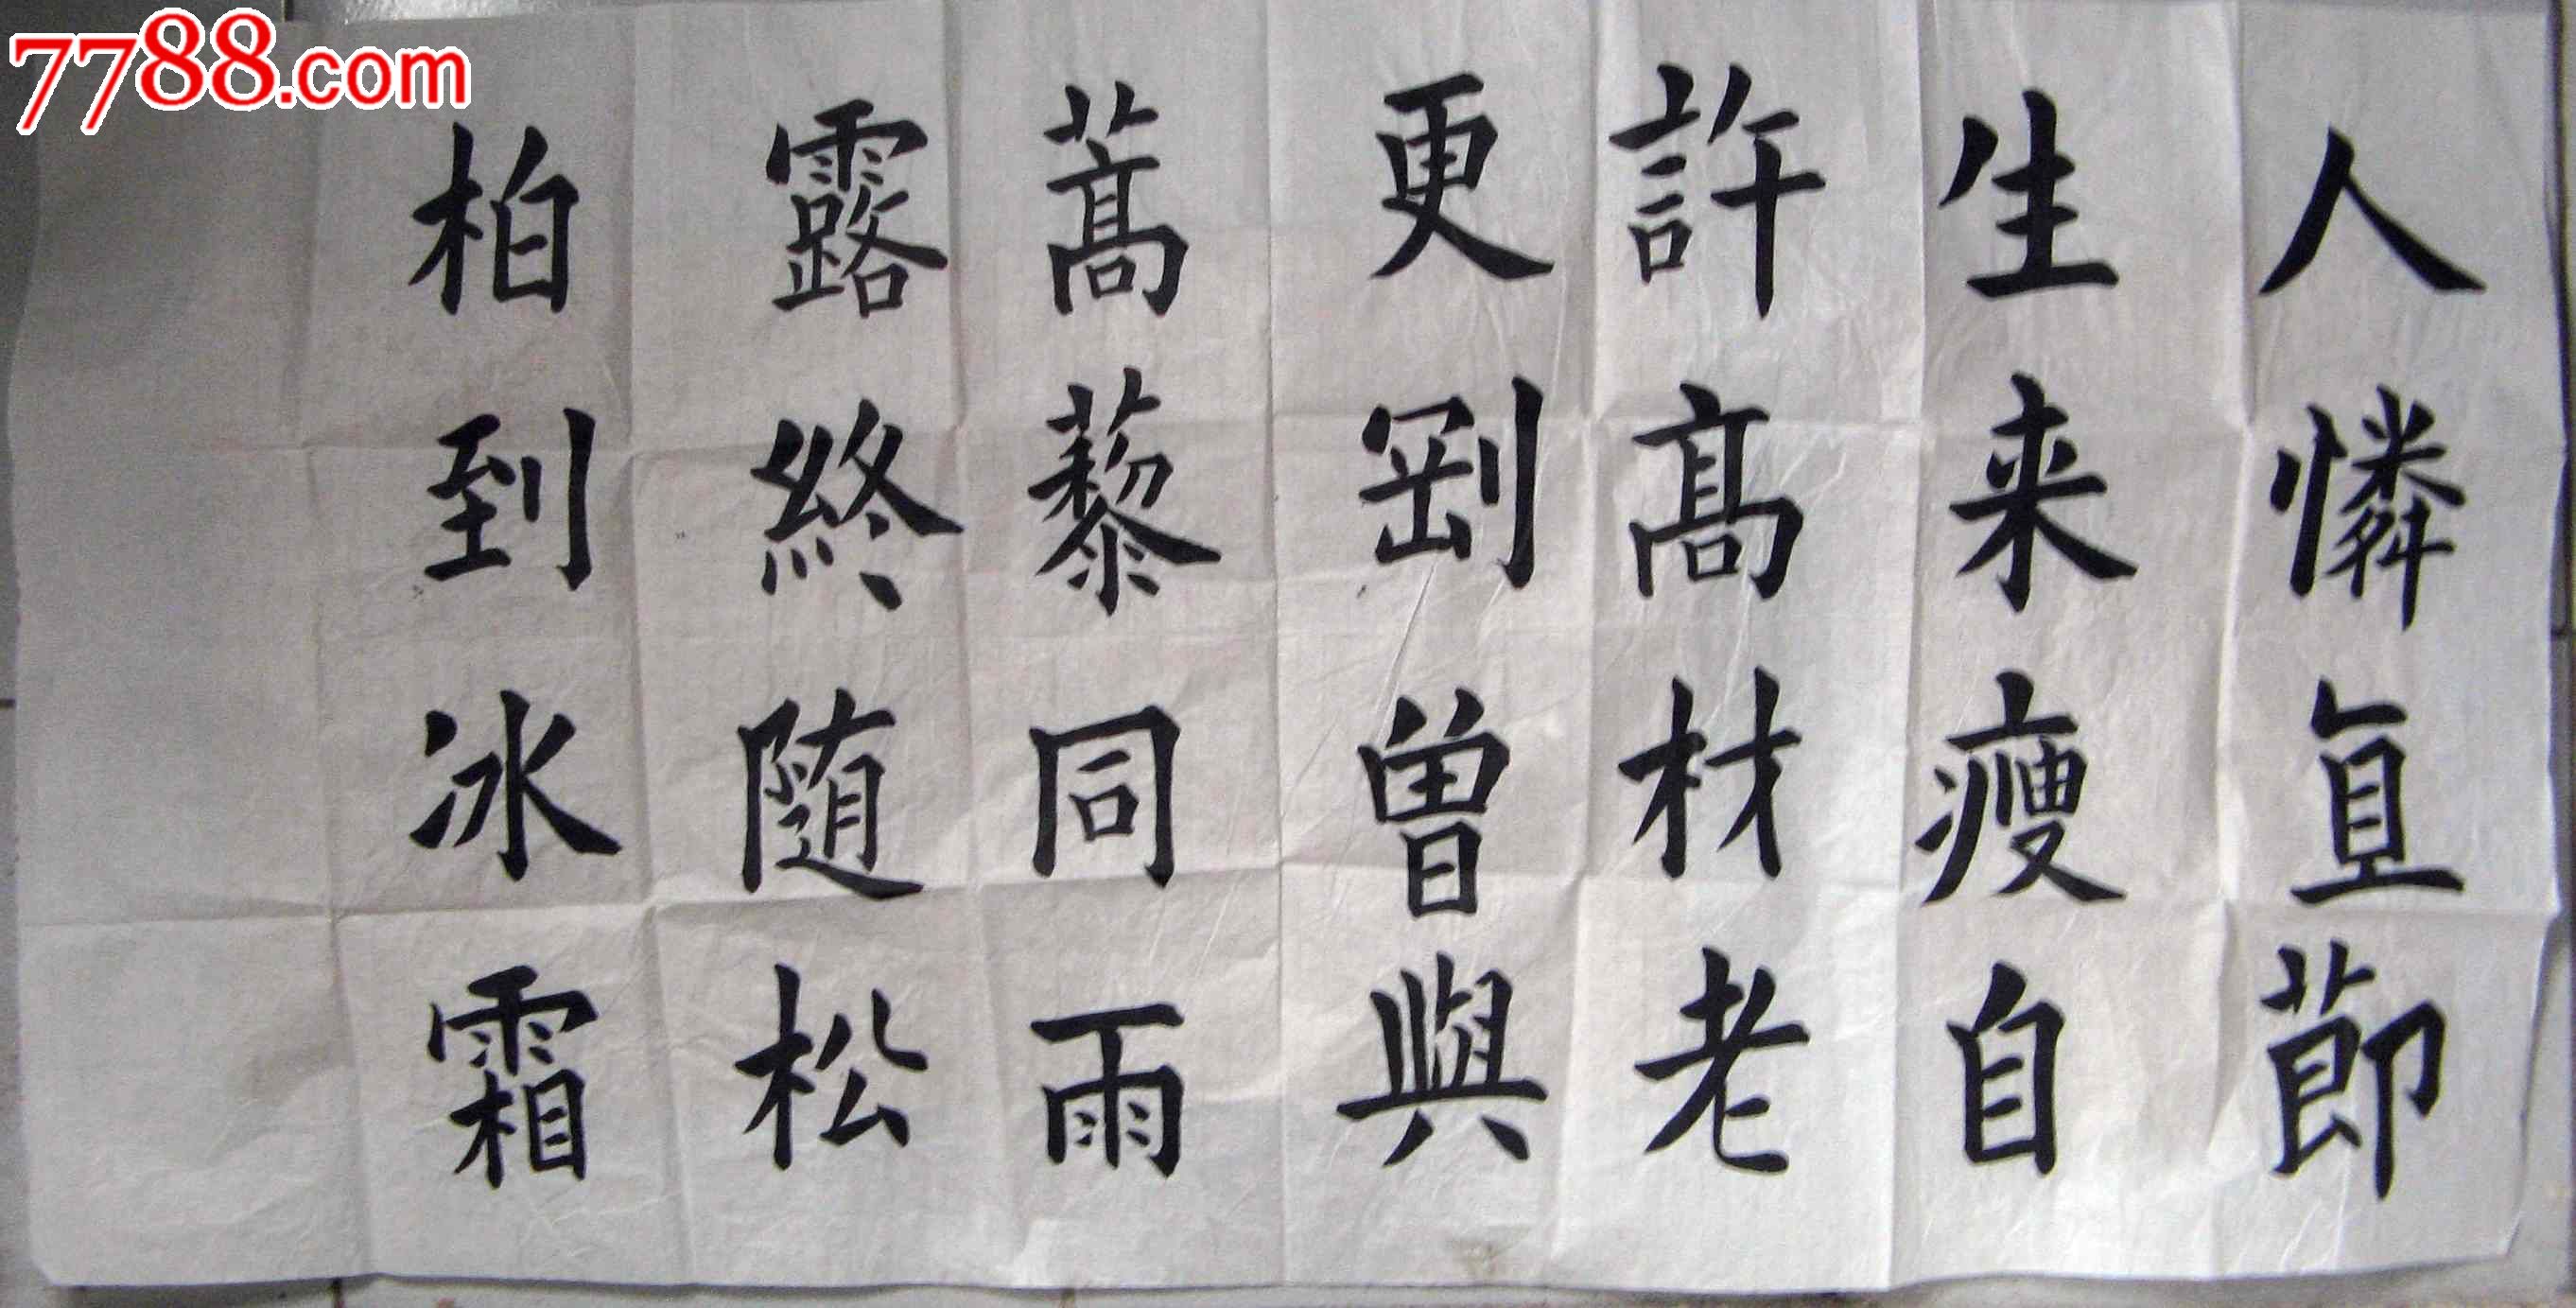 人憐直節
生来瘦自
許高材老
更剛曾與
蒿藜同雨
露終随松
柏到冰霜
7788.com